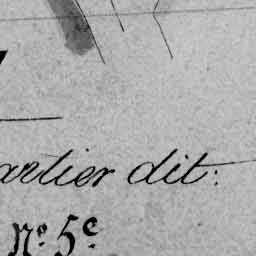 artier dit:
Nº. 5ᵉ.